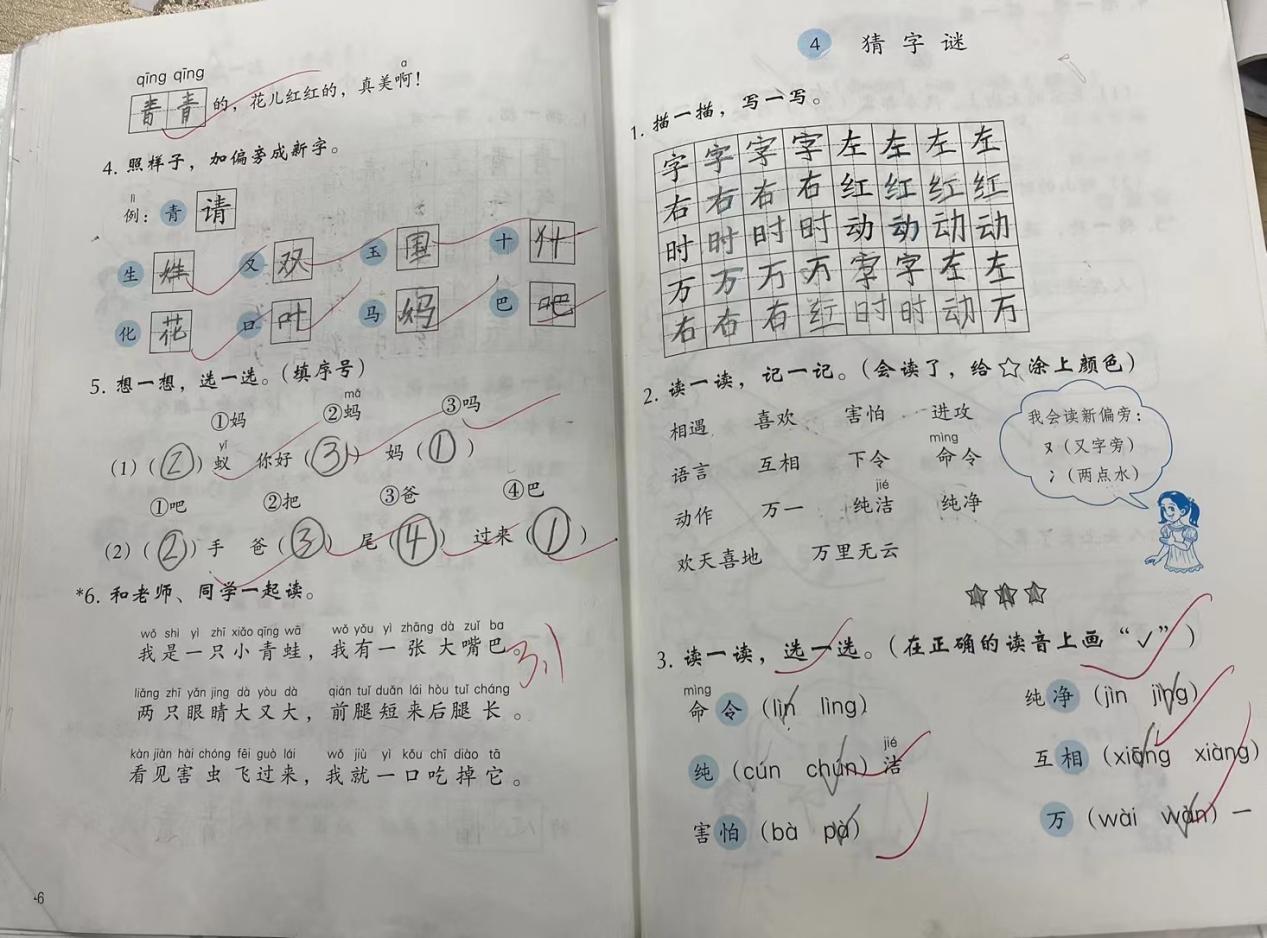 qīng qīng
青青的，花儿红红的，真美啊！
ɑ
4. 照样子，加偏旁成新字。
lì
例：青 请
生 姓 又 双 玉 国 十 什
化 花 口 叶 马 妈 巴 吧
5. 想一想，选一选。（填序号）
mǎ
①妈 ②蚂 ③吗
yǐ
（1）（②）蚁 你好（③） 妈（①）
①吧 ②把 ③爸 ④巴
（2）（②）手 爸（③） 尾（④） 过来（①）
*6. 和老师、同学一起读。
wǒ shì yì zhī xiǎo qīng wā wǒ yǒu yì zhāng dà zuǐ ba
我是一只小青蛙，我有一张大嘴巴。
3.1
liǎng zhī yǎn jing dà yòu dà qián tuǐ duǎn lái hòu tuǐ cháng
两只眼睛大又大，前腿短来后腿长。
kàn jiàn hài chóng fēi guò lái wǒ jiù yì kǒu chī diào tā
看见害虫飞过来，我就一口吃掉它。
6
4 猜字谜
1. 描一描，写一写。
字字字字左左左左
右右右右红红红红
时时时时动动动动
万万万万字字左左
右右右红时时动万
2. 读一读，记一记。（会读了，给☆涂上颜色）
相遇 喜欢 害怕 进攻
mìng
语言 互相 下令 命令
jié
动作 万一 纯洁 纯净
欢天喜地 万里无云
我会读新偏旁：
又（又字旁）
冫（两点水）
3. 读一读，选一选。（在正确的读音上画“✓”）
mìng
命令（lìn lìng） 纯净（jìn jìng）
jié
纯（cún chún）洁 互相（xiāng xiàng）
害怕（bà pà） 万（wài wàn）一